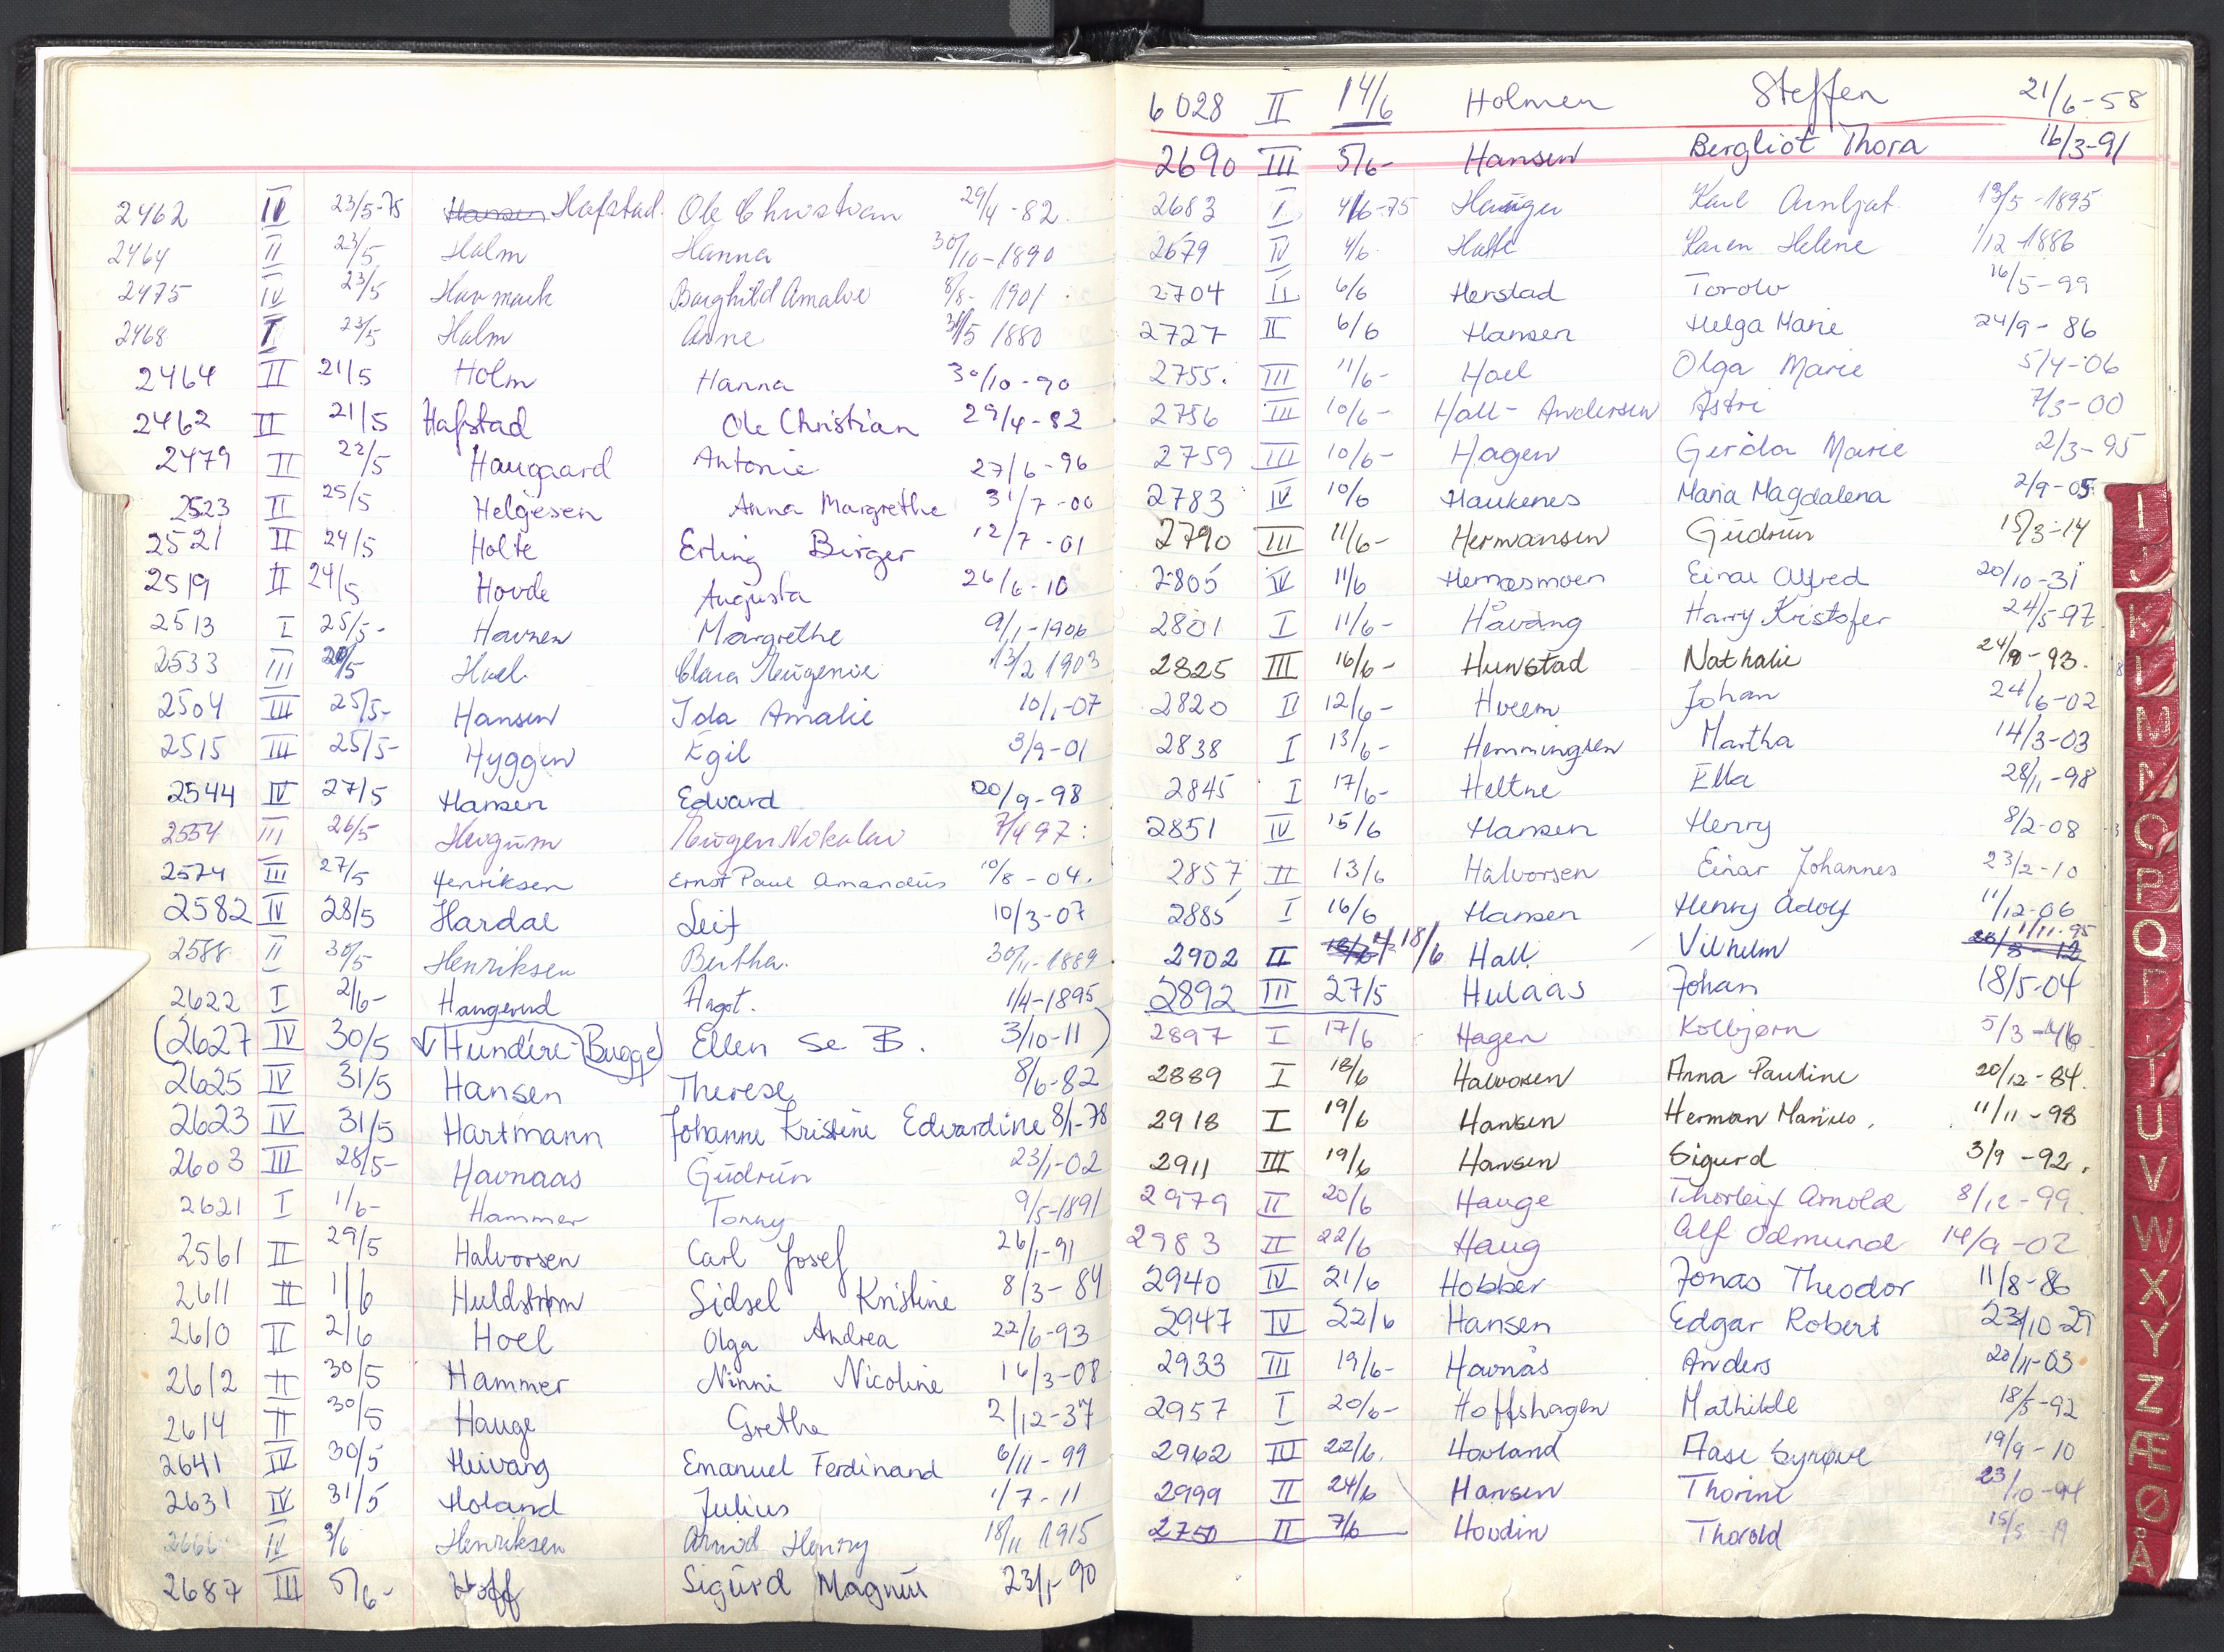 2462 IV 23/5-75 Hansen Hafstad. Ole Christian 29/4-82.
2464 II 23/5 Holm Hanna 30/10-1890
2475 IV 23/5 Havmark Borghild Amalie 8/8-1901.
2468 I 23/5 Holm Anne 31/5 1880
2464 II 21/5 Holm Hanna 30/10-90
2462 II 21/5 Hafstad Ole Christian 29/4-82
2479 II 22/5 Haugaard Antonie 27/6-96
2523 II 25/5 Helgesen Anna Margrethe 31/7-00
2521 II 24/5 Holte Erling Birger 12/7-01
2519 II 24/5 Hovde Augusta 26/6-10
2513 I 25/5- Havnen Margrethe 9/1-1906
2533 III /5 Hoel. Clara Eugenie 13/2 1903
2504 III 25/5- Hansen Ida Amalie 10/1-07
2515 III 25/5- Hyggen Egil 3/9-01
2544 IV 27/5 Hansen Edvard 20/9-98
2554 III 26/5 Haugum Eugen Nikolai 7/4 97.
2574 III 27/5 Henriksen Ernst Paul Amandus 10/8-04.
2582 IV 28/5 Hardal Leif 10/3-07
2588. II 30/5 Henriksen Bertha. 30/11-1889
2622 I 2/6- Haugerud Aagot. 1/4-1895
(2627 IV 30/5 √ Hundere Bugge Ellen se B. 3/10-11)
2625 IV 31/5 Hansen Therese 8/6-82
2623 IV 31/5 Hartmann Johanne Kristine Edvardine 8/1-78
2603 III 28/5- Havnaas Gudrun 23/1-02
2621 I 1/6- Hammer Tonny 9/5-1891
2561 II 29/5 Halvorsen Carl Josef 26/1-91
2611 II 1/6 Huldstrøm Sidsel Kristine 8/3-84
2610 II 2/6 Hoel Olga Andrea 22/6-93
2612 II 30/5 Hammer Ninni Nicoline 16/3-08
2614 II 30/5 Hauge Grethe 2/12-37
2641 IV 30/5 Heivang Emanuel Ferdinand 6/11-99
2631 IV 31/5 Holand Julius 1/7-11
2666 IV 3/6 Henriksen Arvid Henry 18/11 1915
2687 III 5/6- Hoff Sigurd Magnus 23/1-90
6028 II 14/6 Holmen Steffen 21/6-58
2690 III 5/6- Hansen Bergliot Thora 16/3-91
2683 I 4/6-75 Hauger Karl Arnljot 13/5-1895
2679 IV 4/6. Holte Karen Helene 1/12-1886
2704 II 6/6 Herstad Torolv 16/5-99
2727 II 6/6 Hansen Helga Marie 24/9-86
2755. III 11/6- Hoel Olga Marie 5/4-06
2756 III 10/6- Hall-Andersen Astri 7/3-00
2759 III 10/6- Hagen Gerda Marie 2/3-95
2783 IV 10/6 Haukenes Maria Magdalena 2/9-05
2790 III 11/6- Hermansen Gudrun 15/3-14
2805 IV 11/6 Hernæsmoen Einar Alfred 20/10-31
2801 I 11/6- Håvang Harry Kristofer 24/5-97
2825 III 16/6- Hunstad Nathalie 24/9-93.
2820 II 12/6- Hveem Johan 24/6-02
2838 I 13/6- Hemmingsen Martha 14/3-03
2845 I 17/6- Heltne Ella 28/1-98
2851 IV 15/6 Hansen Henry 8/2-08
2857 II 13/6 Halvorsen Einar Johannes 23/2-10
2885 I 16/6 Hansen Henry Adolf 11/12-06
2902 II 18/6 Hall Vilhelm 1/11-95
2892 III 27/5 Hulaas Johan 18/5-04
2897 I 17/6 Hagen Kolbjørn 5/3-46
2889 I 18/6 Halvorsen Anna Pauline 20/12-84.
2918 I 19/6 Hansen Herman Marius. 11/11-98
2911 III 19/6 Hansen Sigurd 3/9-92.
2979 II 20/6 Hauge Thorleif Arnold 8/12-99.
2983 II 22/6 Haug Alf Odmund 14/9-02
2940 IV 21/6 Hobber Jonas Theodor 11/8-86
2947 IV 22/6 Hansen Edgar Robert 23/10-29
2933 III 19/6- Havnås Anders 20/11-03
2957 I 20/6- Hoffshagen Mathilde 18/5-92
2962 IV 22/6. Hovland Aase Synøve 19/9-10
2999 II 24/6 Hansen Thorine 23/10-94
2750 II 7/6 Hovdin Thorold 15/5-19
I
J
K
L
M
N
O
P
Q
R
T
U
V
W
X
Y
Z
Æ
Ø
Å